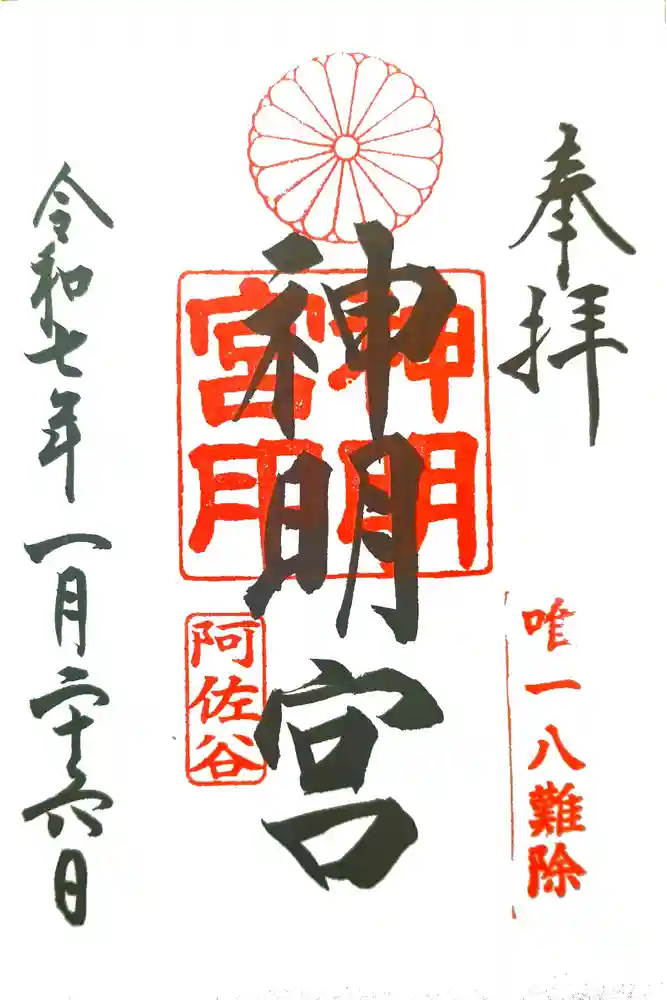 奉拝
唯一八難除
神明宮
神明宮印
阿佐谷
令和七年一月二十六日